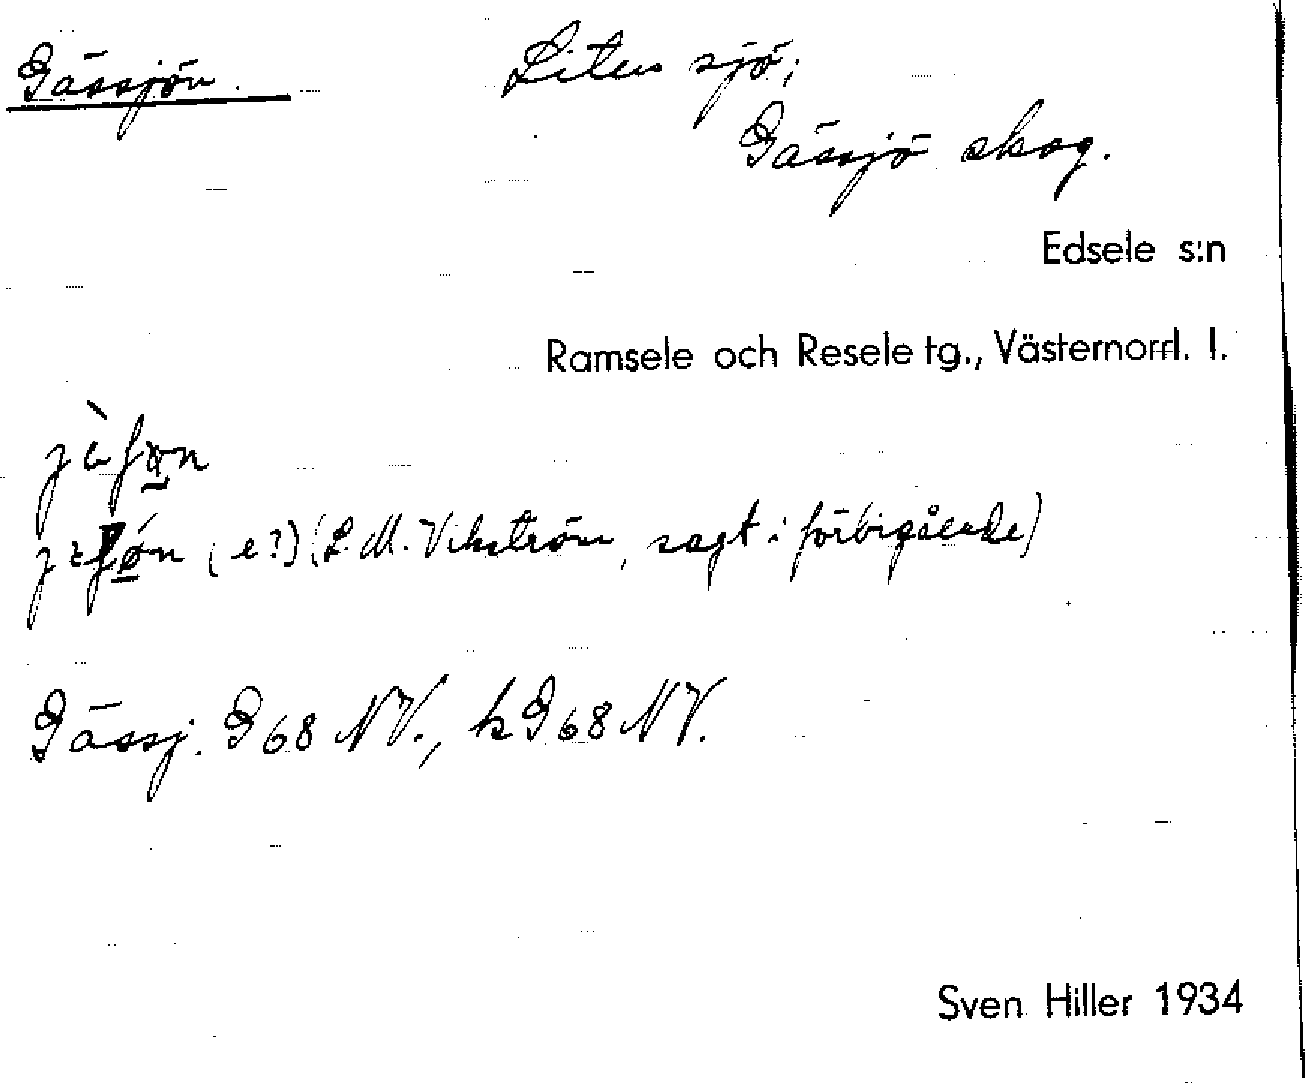 Gässjön. Liten sjö;
Gässjö skog.
Edsele s:n
Ramsele och Resele tg., Västernorrl. l.
(e?) (L. M. Vikström, sagt i förbigående)
Gässj. G 68 NV., k G 68 NV.
Sven Hiller 1934